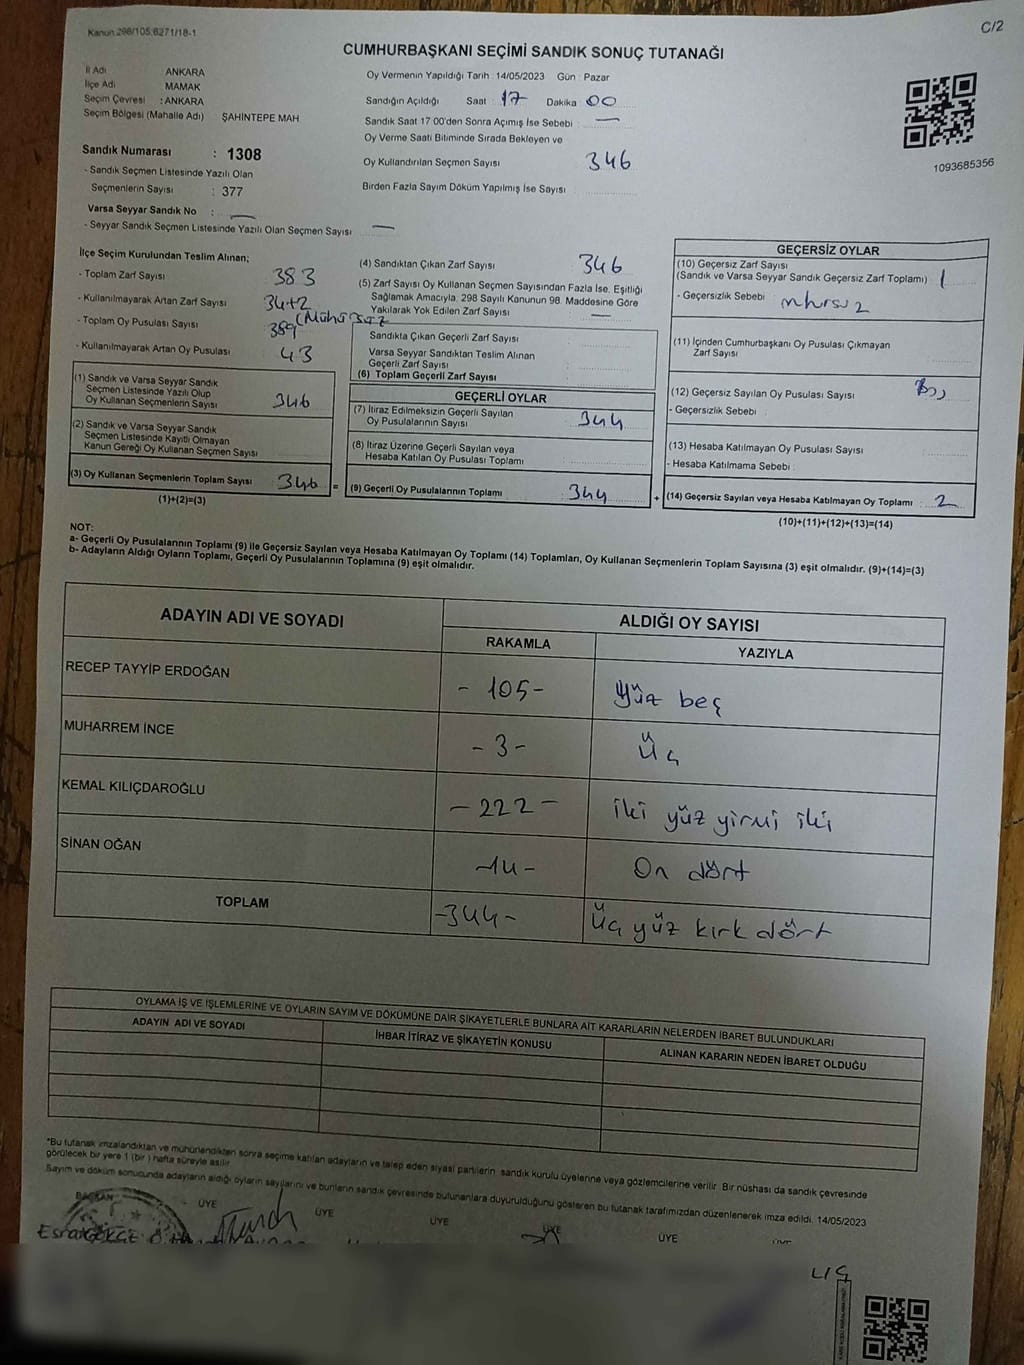 Kanun 298/105;6271/18-1
C/2
CUMHURBAŞKANI SEÇİMİ SANDIK SONUÇ TUTANAĞI
İl Adı : ANKARA
İlçe Adı MAMAK
Seçim Çevresi : ANKARA
Seçim Bölgesi (Mahalle Adı) ŞAHİNTEPE MAH
Sandık Numarası : 1308
- Sandık Seçmen Listesinde Yazılı Olan
Seçmenlerin Sayısı : 377
Varsa Seyyar Sandık No : —
- Seyyar Sandık Seçmen Listesinde Yazılı Olan Seçmen Sayısı —
Oy Vermenin Yapıldığı Tarih : 14/05/2023 Gün : Pazar
Sandığın Açıldığı Saat : 17 Dakika 00
Sandık Saat 17:00'den Sonra Açımış İse Sebebi : —
Oy Verme Saati Bitiminde Sırada Bekleyen ve
Oy Kullandırılan Seçmen Sayısı 346
Birden Fazla Sayım Döküm Yapılmış İse Sayısı
1093685356
İlçe Seçim Kurulundan Teslim Alınan;
- Toplam Zarf Sayısı 383
- Kullanılmayarak Artan Zarf Sayısı 34+2
(Mühürsüz
- Toplam Oy Pusulası Sayısı 389
- Kullanılmayarak Artan Oy Pusulası 43
(1) Sandık ve Varsa Seyyar Sandık
Seçmen Listesinde Yazılı Olup
Oy Kullanan Seçmenlerin Sayısı 346
(2) Sandık ve Varsa Seyyar Sandık
Seçmen Listesinde Kayıtlı Olmayan
Kanun Gereği Oy Kullanan Seçmen Sayısı
(3) Oy Kullanan Seçmenlerin Toplam Sayısı 346 =
(1)+(2)=(3)
(4) Sandıktan Çıkan Zarf Sayısı 346
(5) Zarf Sayısı Oy Kullanan Seçmen Sayısından Fazla İse, Eşitliği
Sağlamak Amacıyla, 298 Sayılı Kanunun 98. Maddesine Göre
Yakılarak Yok Edilen Zarf Sayısı —
Sandıkta Çıkan Geçerli Zarf Sayısı
Varsa Seyyar Sandıktan Teslim Alınan
Geçerli Zarf Sayısı
(6) Toplam Geçerli Zarf Sayısı
GEÇERLİ OYLAR
(7) İtiraz Edilmeksizin Geçerli Sayılan
Oy Pusulalarının Sayısı 344
(8) İtiraz Üzerine Geçerli Sayılan veya
Hesaba Katılan Oy Pusulası Toplamı
(9) Geçerli Oy Pusulalarının Toplamı 344 +
GEÇERSİZ OYLAR
(10) Geçersiz Zarf Sayısı
(Sandık ve Varsa Seyyar Sandık Geçersiz Zarf Toplamı) 1
- Geçersizlik Sebebi
(11) İçinden Cumhurbaşkanı Oy Pusulası Çıkmayan
Zarf Sayısı
(12) Geçersiz Sayılan Oy Pusulası Sayısı
- Geçersizlik Sebebi
(13) Hesaba Katılmayan Oy Pusulası Sayısı
- Hesaba Katılmama Sebebi
(14) Geçersiz Sayılan veya Hesaba Katılmayan Oy Toplamı 2
(10)+(11)+(12)+(13)=(14)
NOT:
a- Geçerli Oy Pusulalarının Toplamı (9) ile Geçersiz Sayılan veya Hesaba Katılmayan Oy Toplamı (14) Toplamları, Oy Kullanan Seçmenlerin Toplam Sayısına (3) eşit olmalıdır. (9)+(14)=(3)
b- Adayların Aldığı Oyların Toplamı, Geçerli Oy Pusulalarının Toplamına (9) eşit olmalıdır.
ADAYIN ADI VE SOYADI
ALDIĞI OY SAYISI
RAKAMLA YAZIYLA
RECEP TAYYİP ERDOĞAN - 105 - Yüz beş
MUHARREM İNCE - 3 - Üç
KEMAL KILIÇDAROĞLU - 222 - iki yüz yirmi iki
SİNAN OĞAN -14- On dört
TOPLAM -344- Üç yüz kırk dört
OYLAMA İŞ VE İŞLEMLERİNE VE OYLARIN SAYIM VE DÖKÜMÜNE DAİR ŞİKAYETLERLE BUNLARA AİT KARARLARIN NELERDEN İBARET BULUNDUKLARI
ADAYIN ADI VE SOYADI İHBAR İTİRAZ VE ŞİKAYETİN KONUSU ALINAN KARARIN NEDEN İBARET OLDUĞU
*Bu tutanak imzalandıktan ve mühürlendikten sonra seçime katılan adayların ve talep eden siyasi partilerin sandık kurulu üyelerine veya gözlemcilerine verilir. Bir nüshası da sandık çevresinde
görülecek bir yere 1 (bir) hafta süreyle asılır
Sayım ve döküm sonucunda adayların aldığı oyların sayılarını ve bunların sandık çevresinde bulunanlara duyurulduğunu gösteren bu tutanak tarafımızdan düzenlenerek imza edildi. 14/05/2023
BAŞKAN ÜYE ÜYE ÜYE ÜYE ÜYE ÜYE
Esra GEKGE